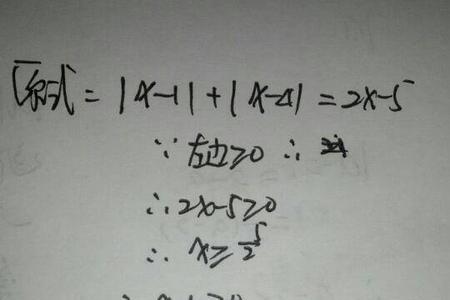 原式 = |x-1| + |x-4| = 2x-5
∵ 左边≥0 ∴
∴ 2x-5≥0
∴ x≥5/2